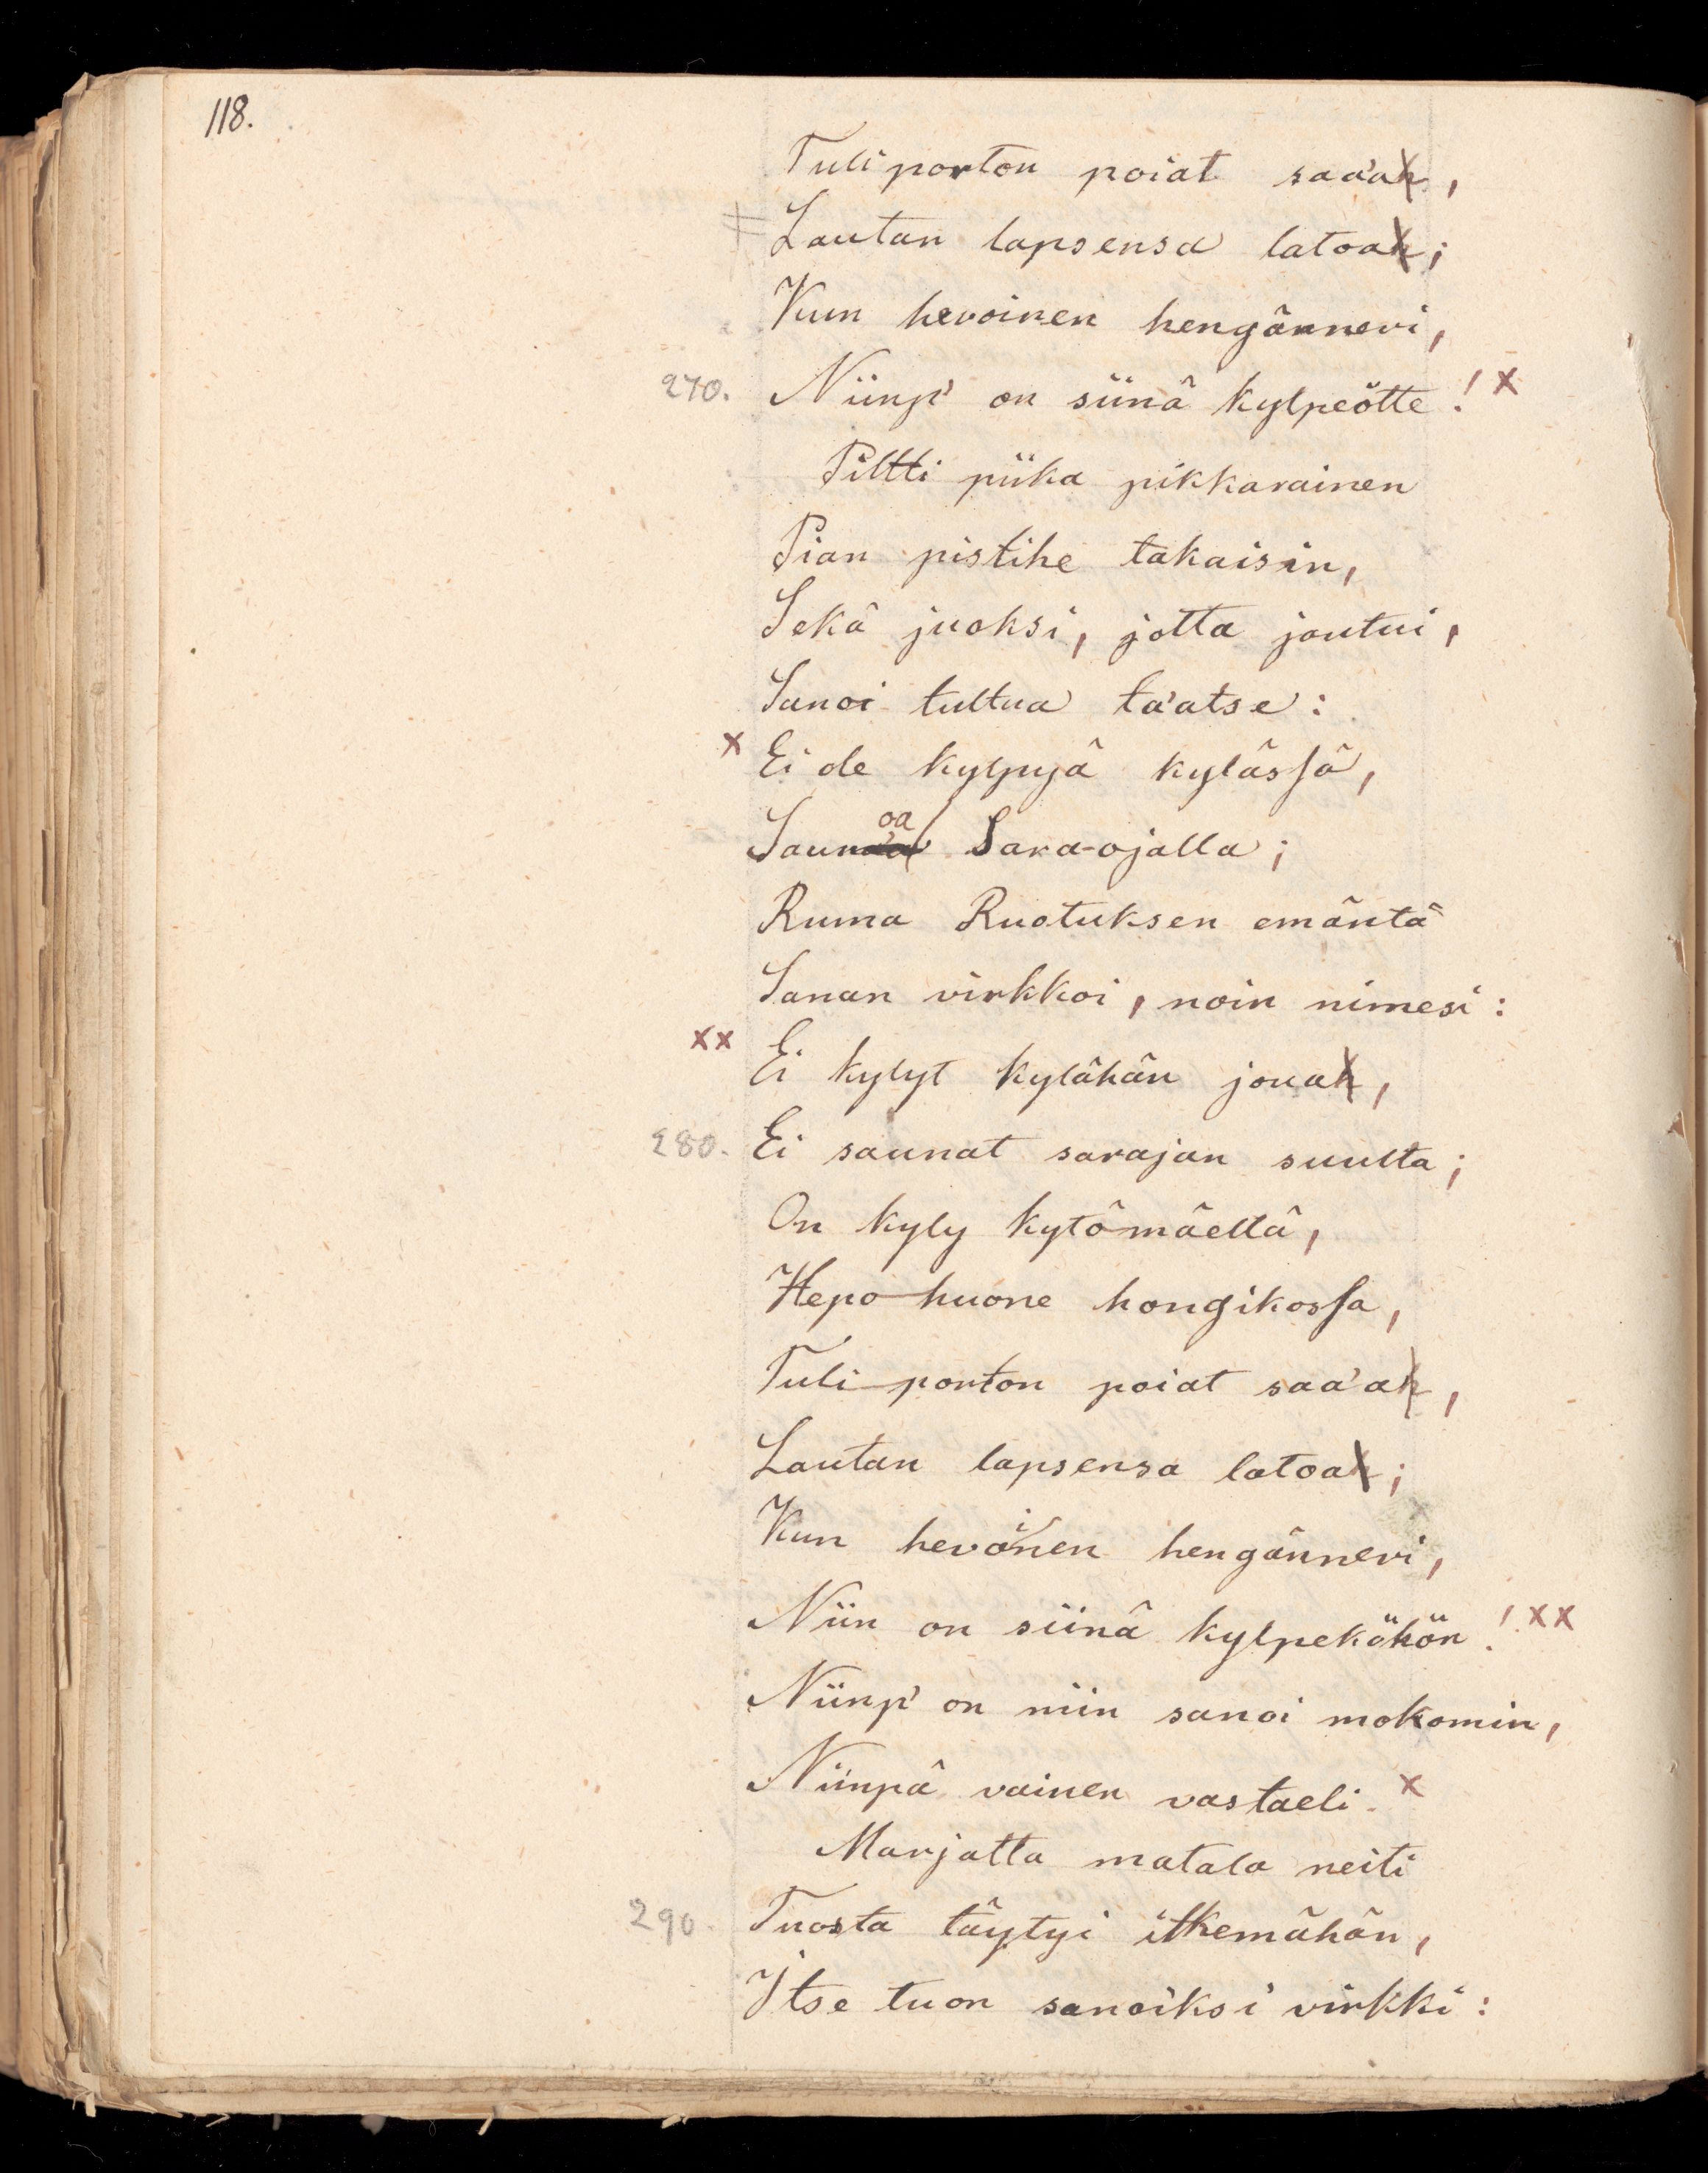 118.
Tuliporton poiat saa'ah,
Lautan lapsensa latoah;
Kun hevoinen hengännevi,
270. Niinp' on siinä kylpeötte! x
Piltti piika pikkarainen
Pian pistihe takaisin,
Sekä juoksi, jotta joutui,
Sanoi tultua ta'atse:
x Ei ole kylpyä kylässä,
oa
Saunaa Sara-ojalla;
Ruma Ruotuksen emäntä
Sanan virkkoi, noin nimesi:
xx Ei kylyt kylähän jouah,
280. Ei saunat sarajan suulta;
On kyly kytömäellä,
Hepo-huone hongikossa,
Tuli-porton poiat saa'ah,
Lautan lapsensa latoah;
Kun hevoinen hengännevi,
Niin on siinä kylpeköhön! xx
Niinp' on niin sanoi mokomin,
Niinpä vainen vastaeli. x
Marjatta matala neiti
290. Tuosta täytyi itkemähän,
Itse tuon sanoiksi virkki: